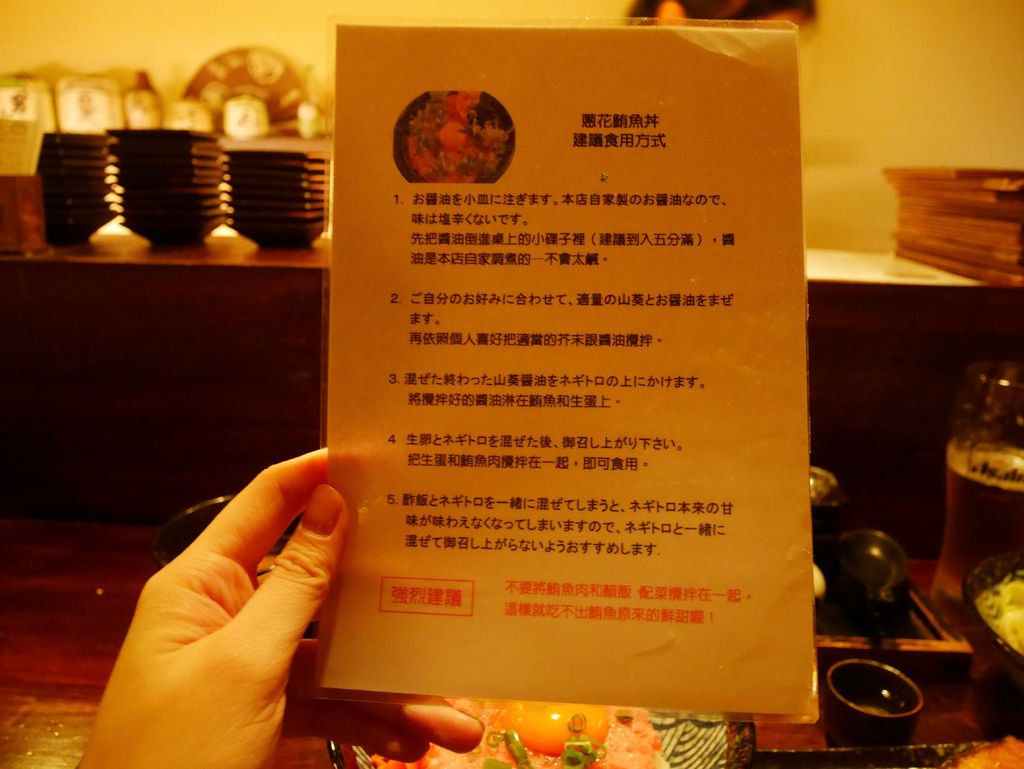 蔥花鮪魚丼
建議食用方式
1. お醤油を小皿に注ぎます。本店自家製のお醤油なので、
味は塩辛くないです。
先把醬油倒進桌上的小碟子裡（建議到入五分滿），醬
油是本店自家調煮的一不會太鹹。
2. ご自分のお好みに合わせて、適量の山葵とお醤油をまぜ
ます。
再依照個人喜好把適當的芥末跟醬油攪拌。
3. 混ぜた終わった山葵醤油をネギトロの上にかけます。
將攪拌好的醬油淋在鮪魚和生蛋上。
4 生卵とネギトロを混ぜた後、御召し上がり下さい。
把生蛋和鮪魚肉攪拌在一起，即可食用。
5. 酢飯とネギトロを一緒に混ぜてしまうと、ネギトロ本来の甘
味が味わえなくなってしまいますので、ネギトロと一緒に
混ぜて御召し上がらないようおすすめします.
強烈建議
不要將鮪魚肉和醋飯 配菜攪拌在一起，
這樣就吃不出鮪魚原來的鮮甜喔！
Asahi